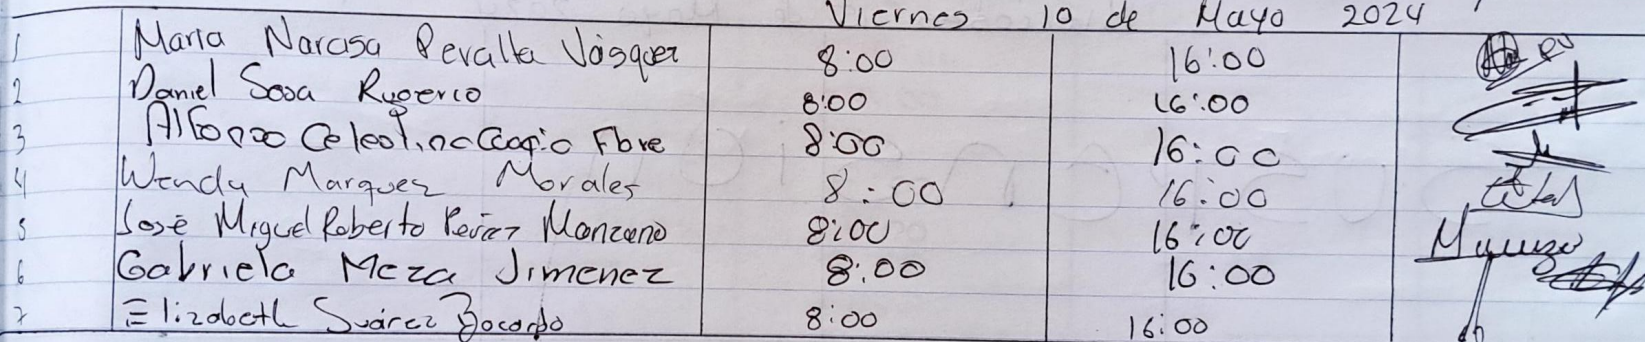 Viernes 10 de Mayo 2024
1 Maria Narcisa Peralta Vásquez 8:00 16:00
2 Daniel Sosa Rugerio 8:00 16:00
3 Alfonso Celestino 8:00 16:00
4 Wendy Marquez Morales 8:00 16:00
5 José Miguel Roberto Pérez Manzano 8:00 16:00
6 Gabriela Meza Jimenez 8:00 16:00
7 Elizabeth Suárez 8:00 16:00